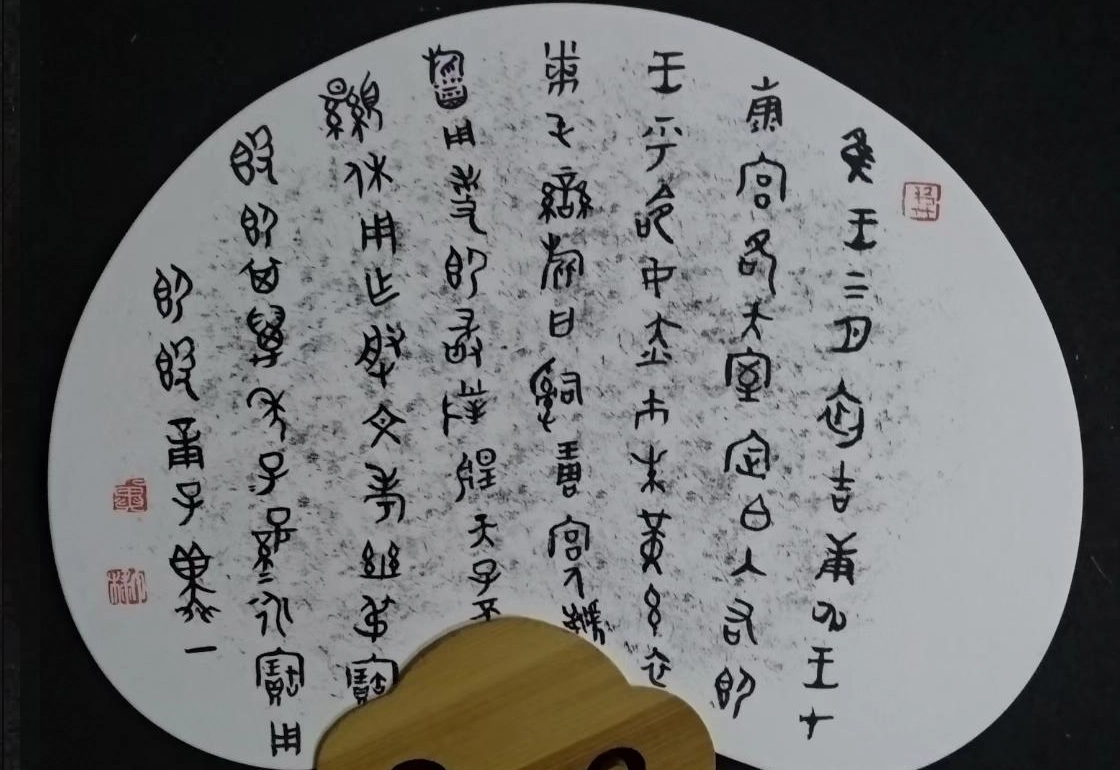 隹王三月初吉庚申王才
康宮各大室定白入右即
王乎命女赤巿朱黃玄衣
黹屯䜌旂曰嗣琱宮人
用事即敢對揚天子不
顯休用乍朕文考幽弔寶
簋即其萬年子孫永寶用
即簋